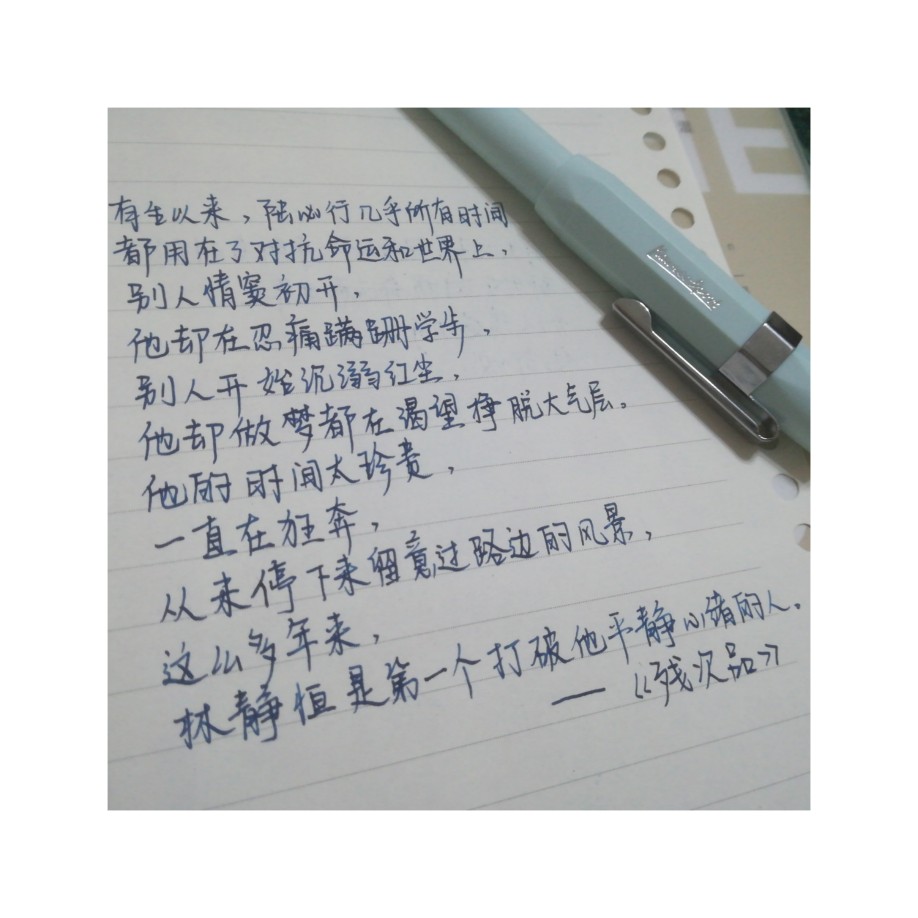 有生以来，陆必行几乎所有时间
都用在了对抗命运和世界上，
别人情窦初开，
他却在忍痛蹒跚学步，
别人开始沉溺红尘，
他却做梦都在渴望挣脱大气层。
他的时间太珍贵，
一直在狂奔，
从未停下来留意过路边的风景，
这么多年来，
林静恒是第一个打破他平静心绪的人。
——《残次品》